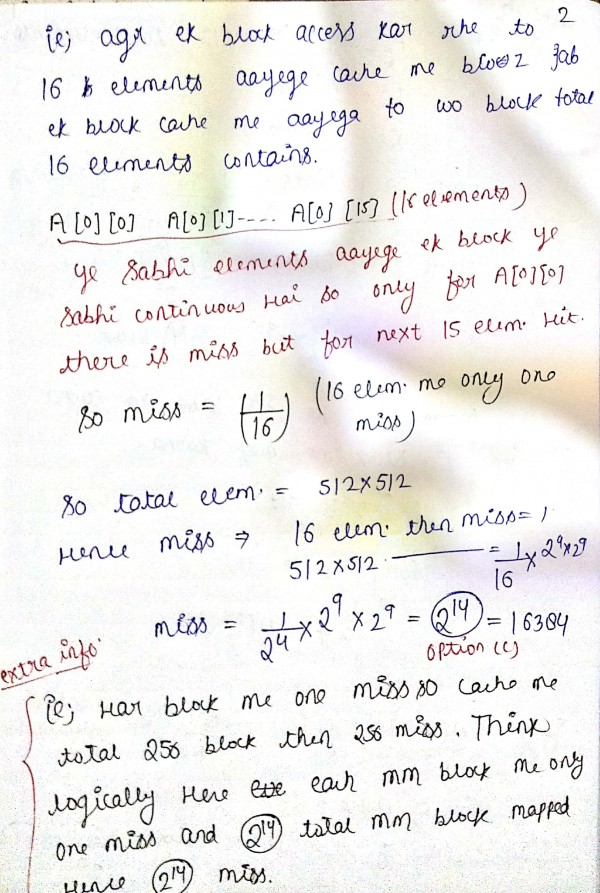 2
ie; agr ek block access kar rhe to
16 elements aayege cache me jab
ek block cache me aayega to wo block total
16 elements contains.
A[0][0] A[0][1]---- A[0][15] (16 elements)
ye sabhi elements aayege ek block ye
sabhi continuous hai so only for A[0][0]
there is miss but for next 15 elem. hit.
So miss = (1/16) (16 elem. me only one
miss)
So total elem. = 512×512
Hence miss ⇒ 16 elem. then miss = 1
512×512 ——— = 1/16 × 2^9×2^9
miss = 1/2^4 × 2^9 × 2^9 = 2^14 = 16384
option (c)
extra info.
ie; Har block me one miss so cache me
total 256 block then 256 miss. Think
logically Here each mm block me only
one miss and 2^14 total mm block mapped
Hence 2^14 miss.